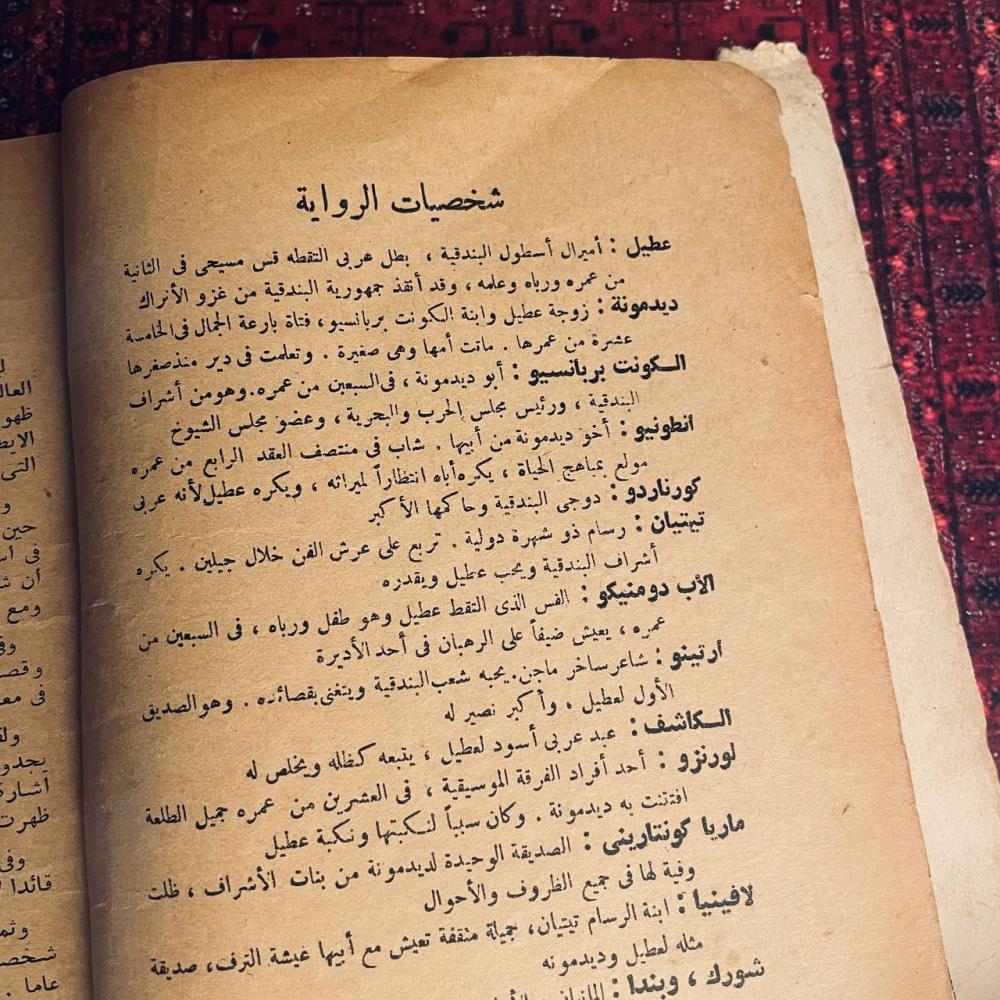 شخصيات الرواية
عطيل : أميرال أسطول البندقية ، بطل عربى التقطه قس مسيحى فى الثانية
من عمره ورباه وعلمه ، وقد أنقذ جمهورية البندقية من غزو الأتراك
ديدمونة : زوجة عطيل وابنة الكونت بربانسيو ، فتاة بارعة الجمال فى الخامسة
عشرة من عمرها . ماتت أمها وهى صغيرة . وتعلمت فى دير منذ صغرها
الكونت بربانسيو : أبو ديدمونة ، فى السبعين من عمره . وهو من أشراف
البندقية ، ورئيس مجلس الحرب والبحرية ، وعضو مجلس الشيوخ
أنطونيو : أخو ديدمونة من أبيها . شاب فى منتصف العقد الرابع من عمره
مولع بمباهج الحياة ، يكره أباه انتظاراً لميراثه ، ويكره عطيل لأنه عربى
كورناردو : دوجى البندقية وحاكمها الأكبر
تيتيان : رسام ذو شهرة دولية . تربع على عرش الفن خلال جيلين . يكره
أشراف البندقية ويحب عطيل ويقدره
الأب دومنيكو : القس الذى التقط عطيل وهو طفل ورباه ، فى السبعين من
عمره ، يعيش ضيفاً على الرهبان فى أحد الأديرة
أرتينو : شاعر ساخر ماجن . يحبه شعب البندقية ويتغنى بقصائده . وهو الصديق
الأول لعطيل . وأكبر نصير له
الكاشف : عبد عربى أسود لعطيل ، يتبعه كظله ويخلص له
لورنزو : أحد أفراد الفرقة الموسيقية ، فى العشرين من عمره جميل الطلعة
افتتنت به ديدمونة . وكان سبباً لنكبتها ونكبة عطيل
ماريا كونتارينى : الصديقة الوحيدة لديدمونة من بنات الأشراف ، ظلت
وفية لها فى جميع الظروف والأحوال
لافينيا : ابنة الرسام تيتيان، جميلة مثقفة تعيش مع أبيها عيشة الترف، صديقة
مثله لعطيل وديدمونه
شورك ، وبندا :
العالم
ظهو
التى
و
حين
ومع
وقصـ
فى معـ
يجدو
أشارة
ظهرت
وفى
قائدا
وثم
شخصـ
عاما .